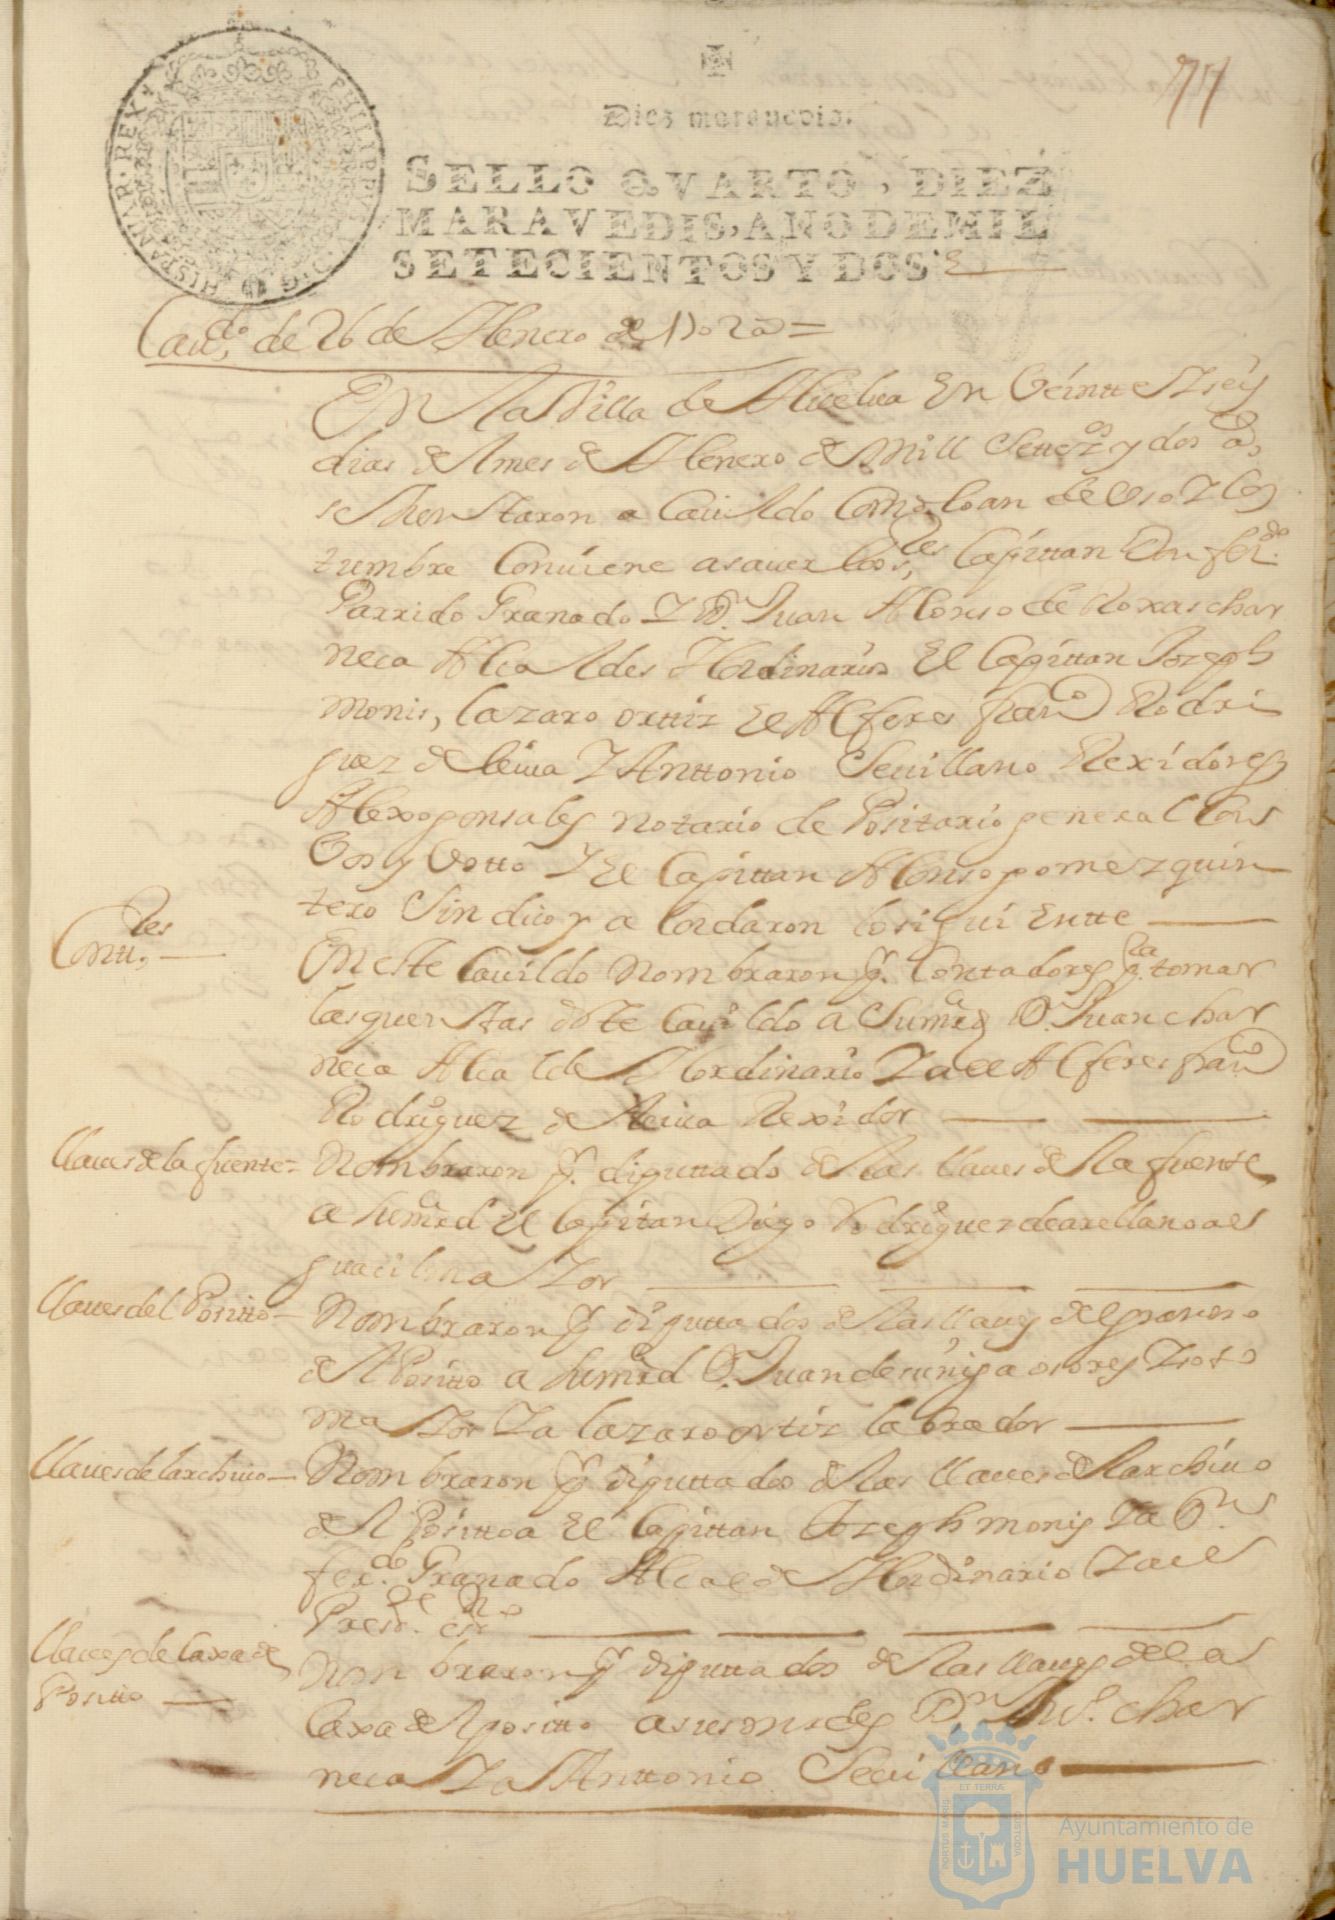 77
Diez maravedis.
SELLO QVARTO, DIEZ
MARAVEDIS, AÑO DE MIL
SETECIENTOS Y DOS.
HISPANIAR. REX
PHILIPPVS V D. G.
Cavdo, de 26 de Henero de 1702 as=
En la Villa de Huelva En Veintte I seis
dias del mes de Henero de Mill Settezos y dos as,
se Juntaron a Cavildo Como lo an de Uso I Cos
tumbre Conviene a saver los Sres, Capittan Don ferdo
Garrido Granado I Dn. Juan Alonso de Roxas char
neca Alcaldes Hordinarios El Capittan Jozeph
Monis, Lazaro orttiz El Alferes franco Rodri
guez de leiva I Anttonio Sevillano Rexidores
Alexo gonsales notario de Positario general Con
Vos y Votto I El Capittan Alonso gomez quin
tero Sindico y a Cordaron lo siguiEntte
Contt,res
En este Cavildo nombraron pr. Contadores pra tomar
las quentas deste Cavildo a Sumrd Dn. Juan char
neca Alcalde Hordinario I a el Alferes franco
Rodriguez de Leiva Rexidor
llaves de la fuente=
Nombraron pr. diputtado de las llaves de la fuente
a sumrd El Capitan Diego Rodriguez de arellano al
guacil maIor
llaves del Positto
Nombraron pr diputtados de las llaves del granero
del Positto a sumrd Dn. Juan de suñiga osores I soto
maIor I a lazaro ortiz labrador
llaves del archivo
Nombraron pr diputtados de las llaves del archivo
del Positto a El Capittan Jozeph monis I a Dn.
ferdo. Granado Alcalde Hordinario I a el
Preste. esno
llaves de Caxa de
Positto
Nombraron pr diputtados de las llaves de la
Caxa del positto a sus mrdes Dn Jun. char
neca I a Anttonio Sevillano
PORTUS MARIS ET TERRAE CUSTODIA
Ayuntamiento de
HUELVA